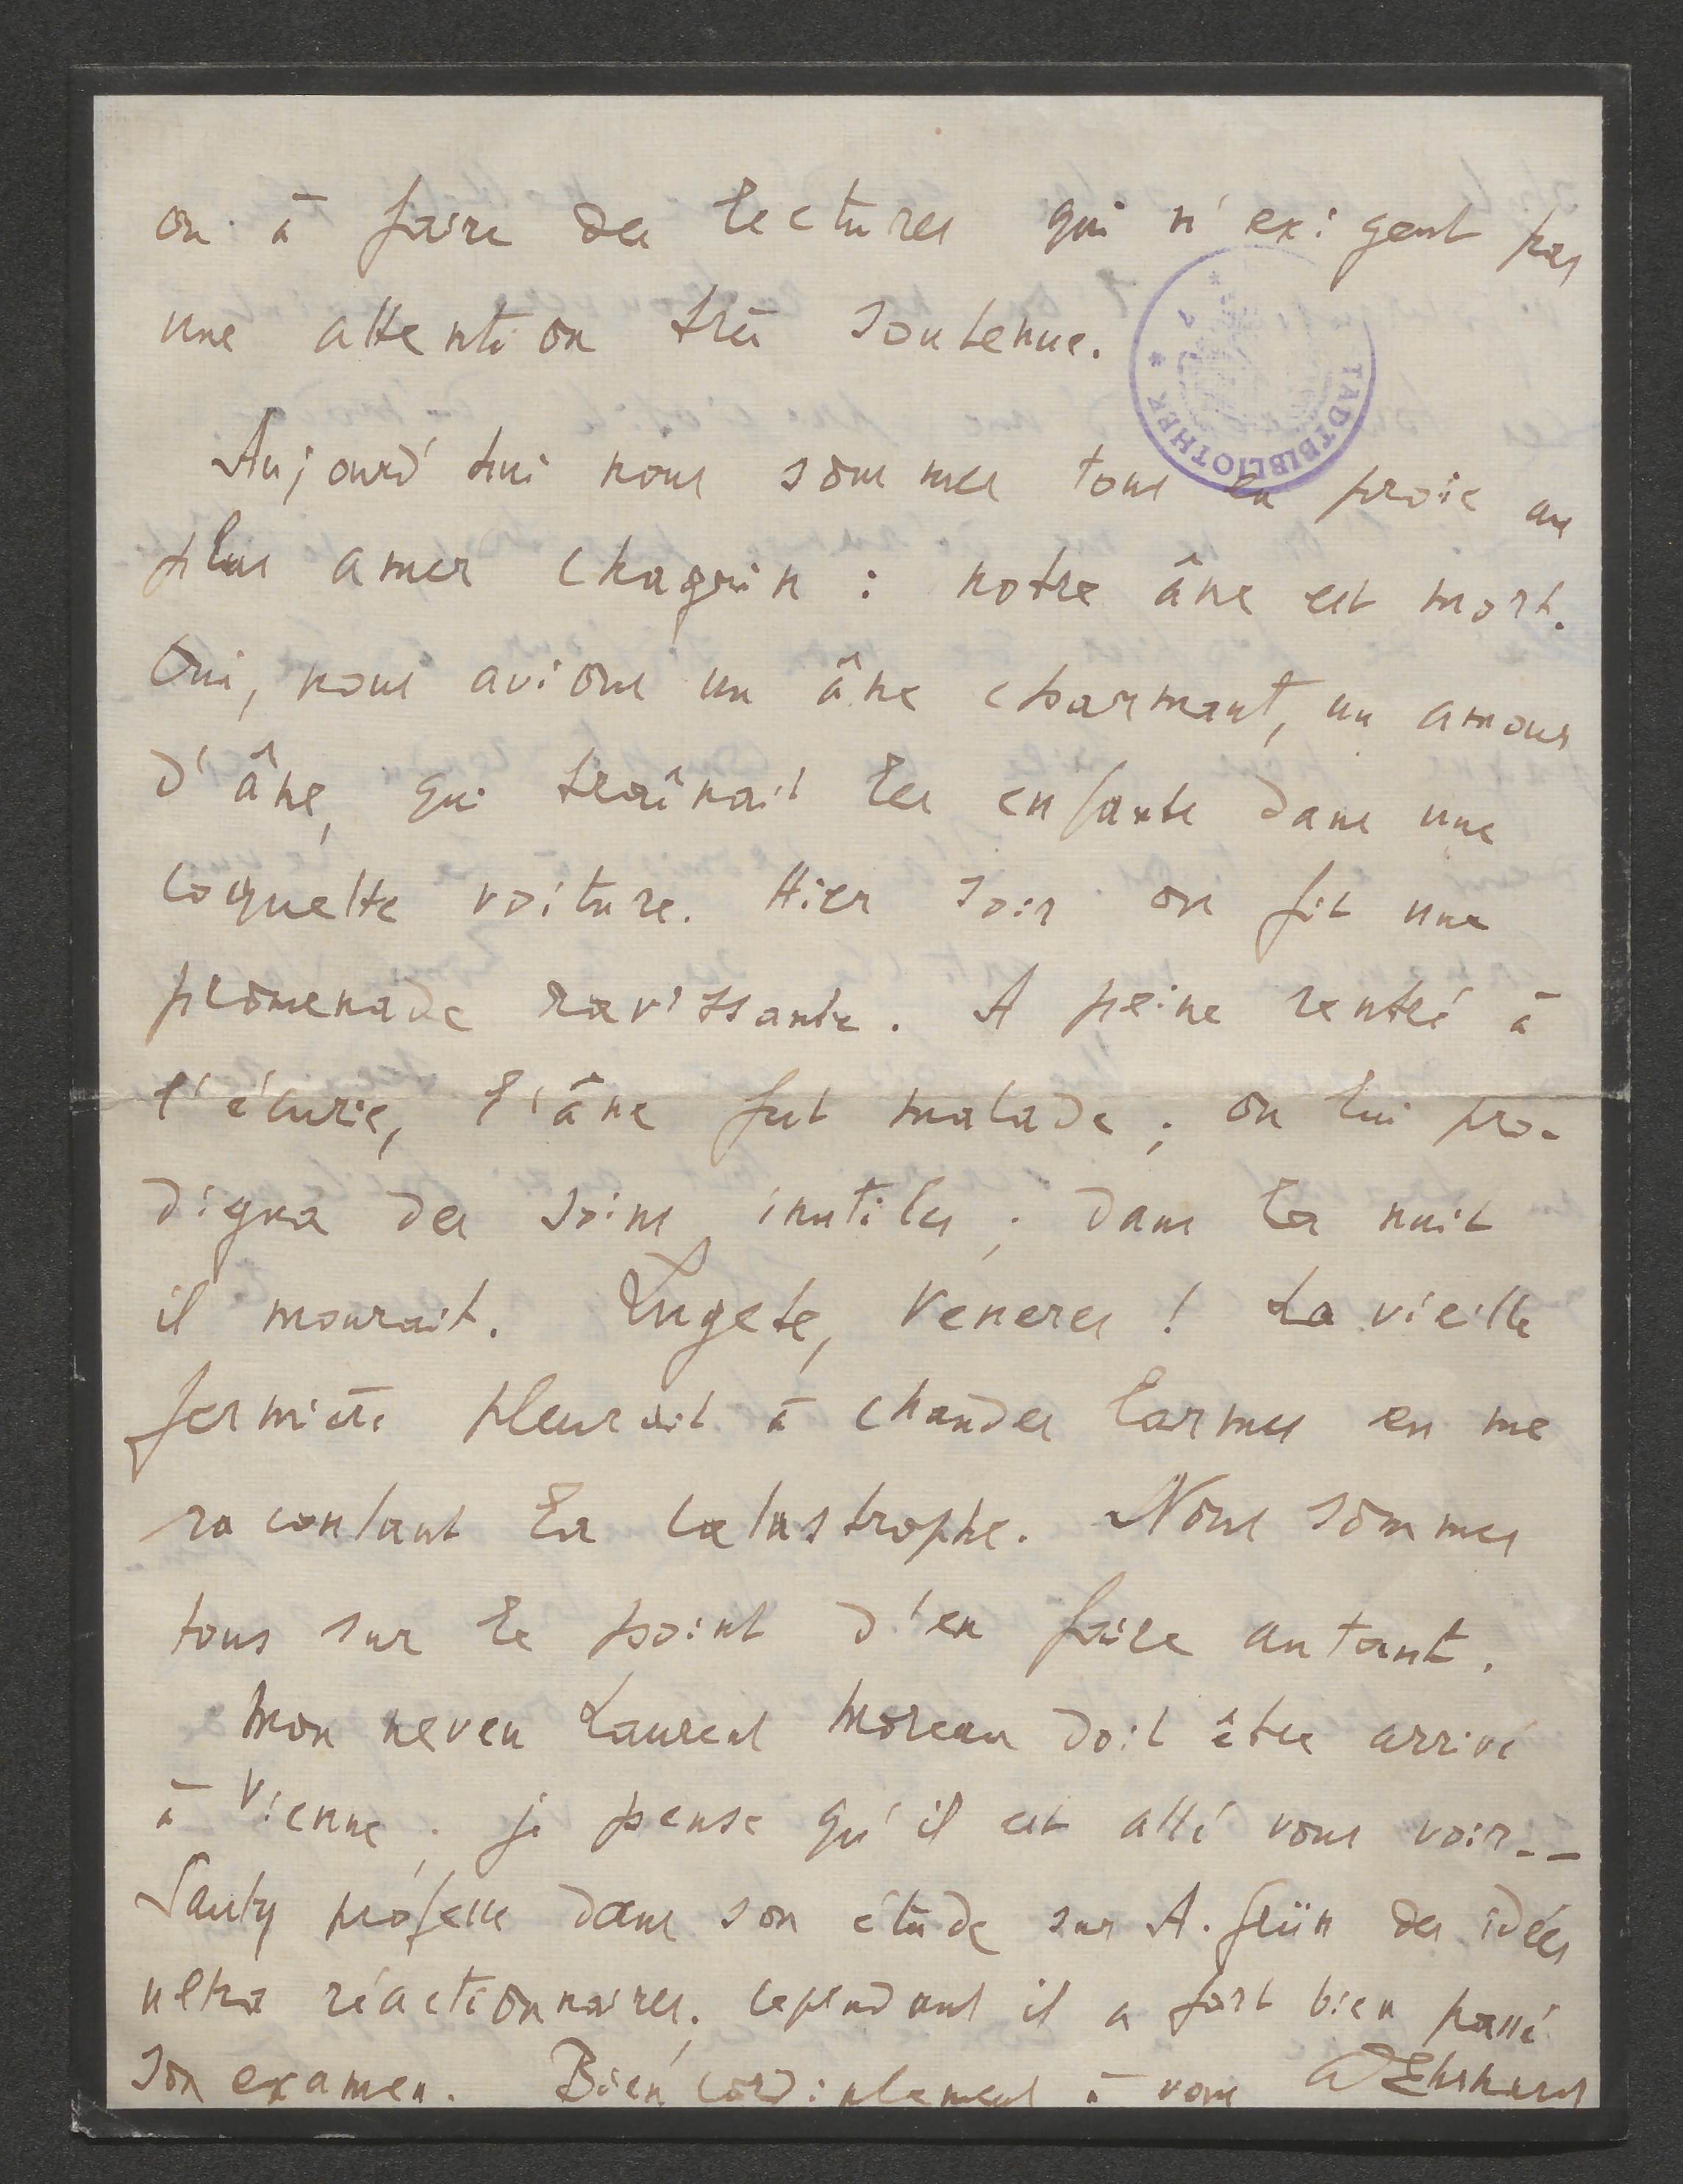 ou à faire des lectures qui n'exigent pas
une attention très soutenue.
STADTBIBLIOTHEK
Aujourd'hui nous sommes tous en proie au
plus amer chagrin : notre âne est mort.
Oui, nous avions un âne charmant, un amour
d'âne, qui traînait les enfants dans une
coquette voiture. Hier soir on fit une
promenade ravissante. A peine rentré à
l'écurie, l'âne fut malade ; on lui pro-
digua des soins inutiles ; dans la nuit
il mourait. Lugete, Veneres ! La vieille
fermière pleurait à chaudes larmes en me
racontant la catastrophe. Nous sommes
tous sur le point d'en faire autant.
Mon neveu Laurent Moreau doit être arrivé
à Vienne ; je pense qu'il est allé vous voir --
professe dans son étude sur A. Grün des idées
ultra réactionnaires. Cependant il a fort bien passé
son examen. Bien cordialement à vous AEhrhard